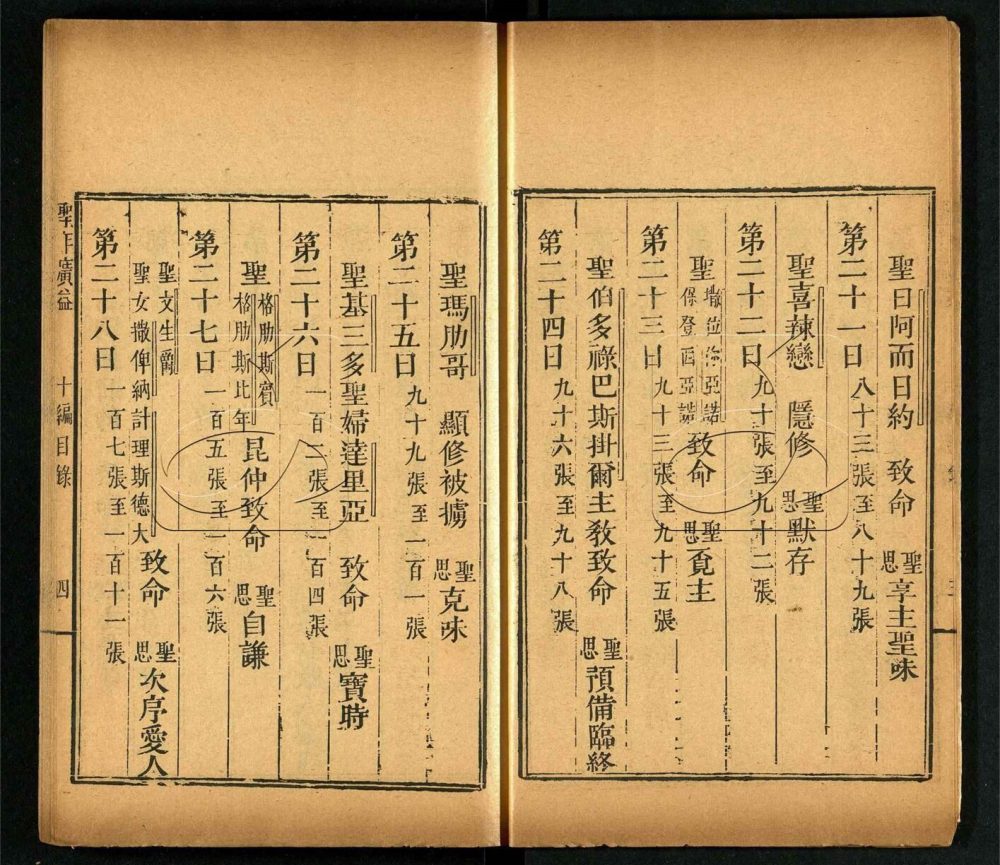 聖日阿而日約　致命　聖思享主聖味
第二十一日　八十三張至八十九張
聖喜辣戀　隱修　聖思默存
第二十二日　九十張至九十二張
聖保登西亞諾致命　聖思覔主
第二十三日　九十三張至九十五張
聖伯多祿巴斯掛爾主教致命　聖思預備臨終
第二十四日　九十六張至九十八張
聖瑪肋哥　顯修被擄　聖思克味
第二十五日　九十九張至一百一張
聖基三多聖婦達里亞　致命　聖思寶時
第二十六日　一百二張至一百四張
聖格肋斯賓格肋斯比年昆仲致命　聖思自謙
第二十七日　一百五張至一百六張
聖文生爵聖女撒俾納計理斯德大致命　聖思次序愛人
第二十八日　一百七張至一百十一張
聖年廣益　十編目錄　四